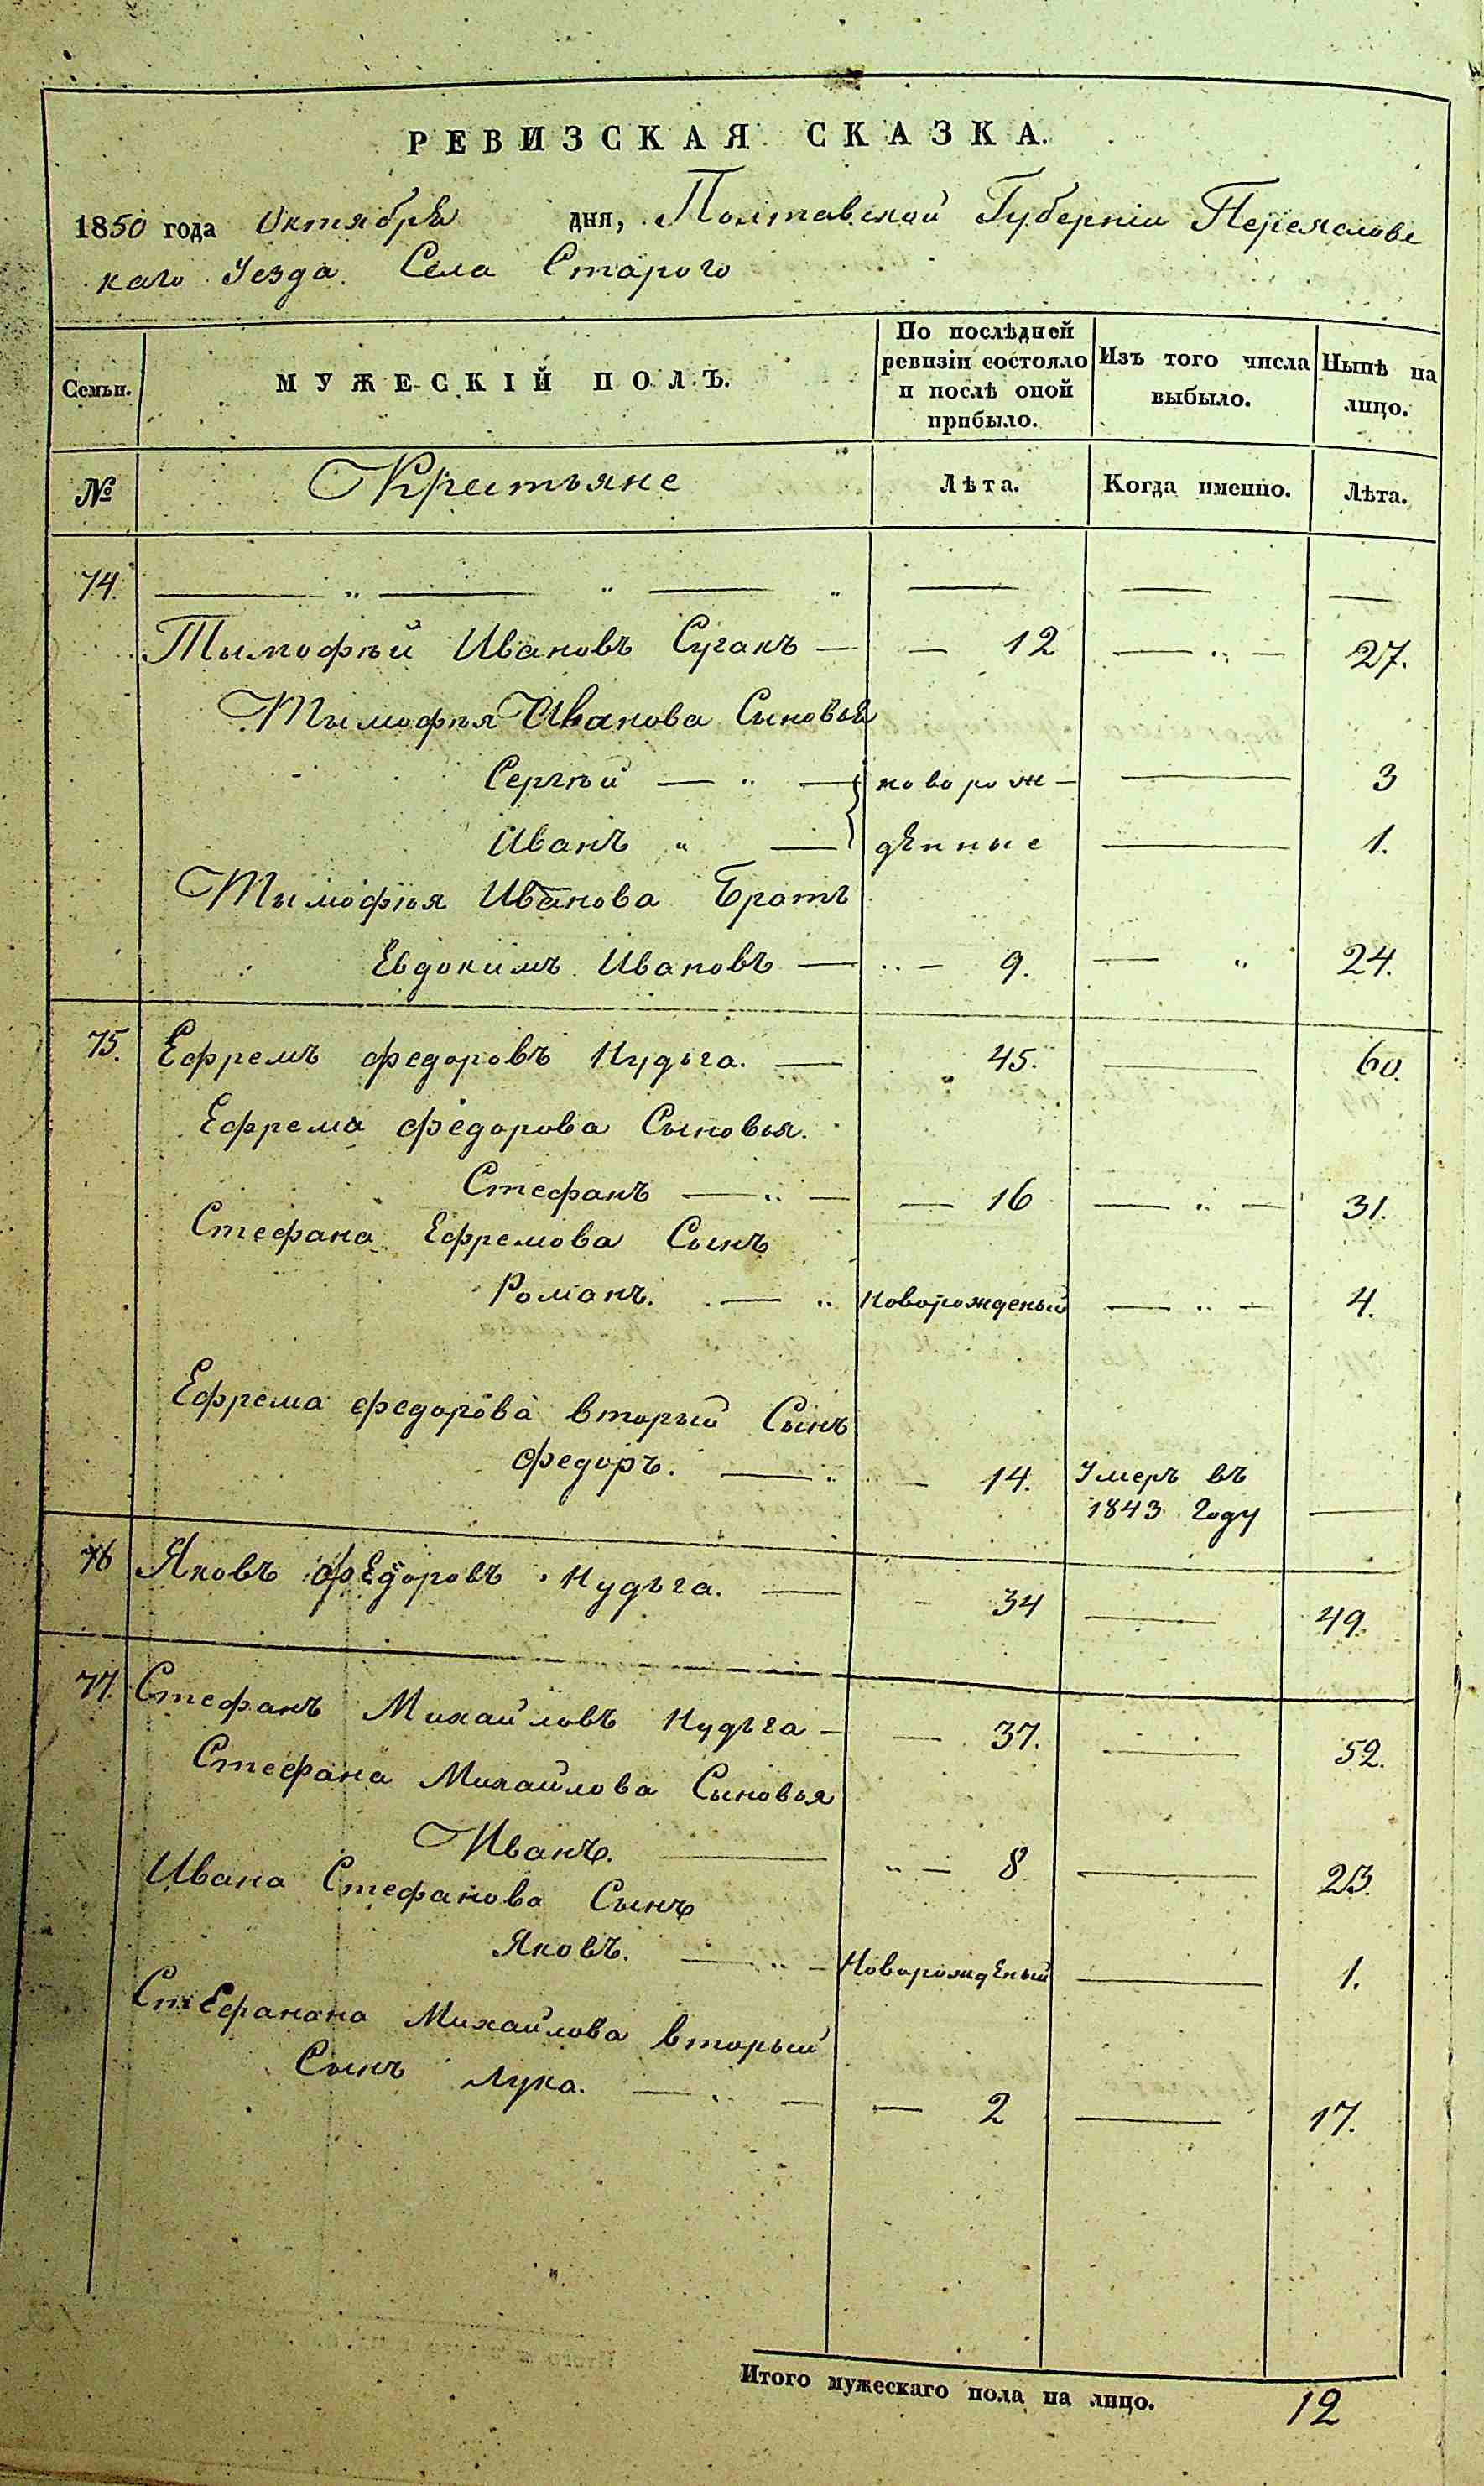 РЕВИЗСКАЯ СКАЗКА.
1850 года Октября дня, Полтавской Губерніи Переяславс
каго Уезда. Села Старого
Семьи. МУЖЕСКІЙ ПОЛЪ. По послѣдней ревизіи состояло и послѣ оной прибыло. Изъ того числа выбыло. Нынѣ на лицо.
№ Крестьяне Лѣта. Когда именно. Лѣта.
74. — " — " — " — — —
Тымофѣй Ивановъ Суганъ — — 12 — " — 27.
Тымофѣя Иванова Сыновья
Сергѣй — " — новорож — — 3
Иванъ " — дѣнные — 1.
Тымофѣя Иванова Братъ
Евдокимъ Ивановъ — " — 9. — " 24.
75. Ефремъ Федоровъ Кудьга. — 45. — 60.
Ефрема Федорова Сыновья.
Стефанъ — " — — 16 — " — 31.
Стефана Ефремова Сынъ
Романъ. — " Новорожденый — " — 4.
Ефрема Федорова вторый Сынъ
Федоръ. — " — 14. Умеръ въ
1843 Году —
76 Яковъ Федоровъ Кудьга. — - 34 — 49.
77. Стефанъ Михайловъ Кудьга — — 37. — 52.
Стефана Михайлова Сыновья
Иванъ. — " — 8. — 23.
Ивана Стефанова Сынъ
Яковъ. — " — Новорожденый — 1.
Стефанана Михайлова вторый
Сынъ Лука. — " — — 2 — 17.
Итого мужескаго пола на лицо. 12